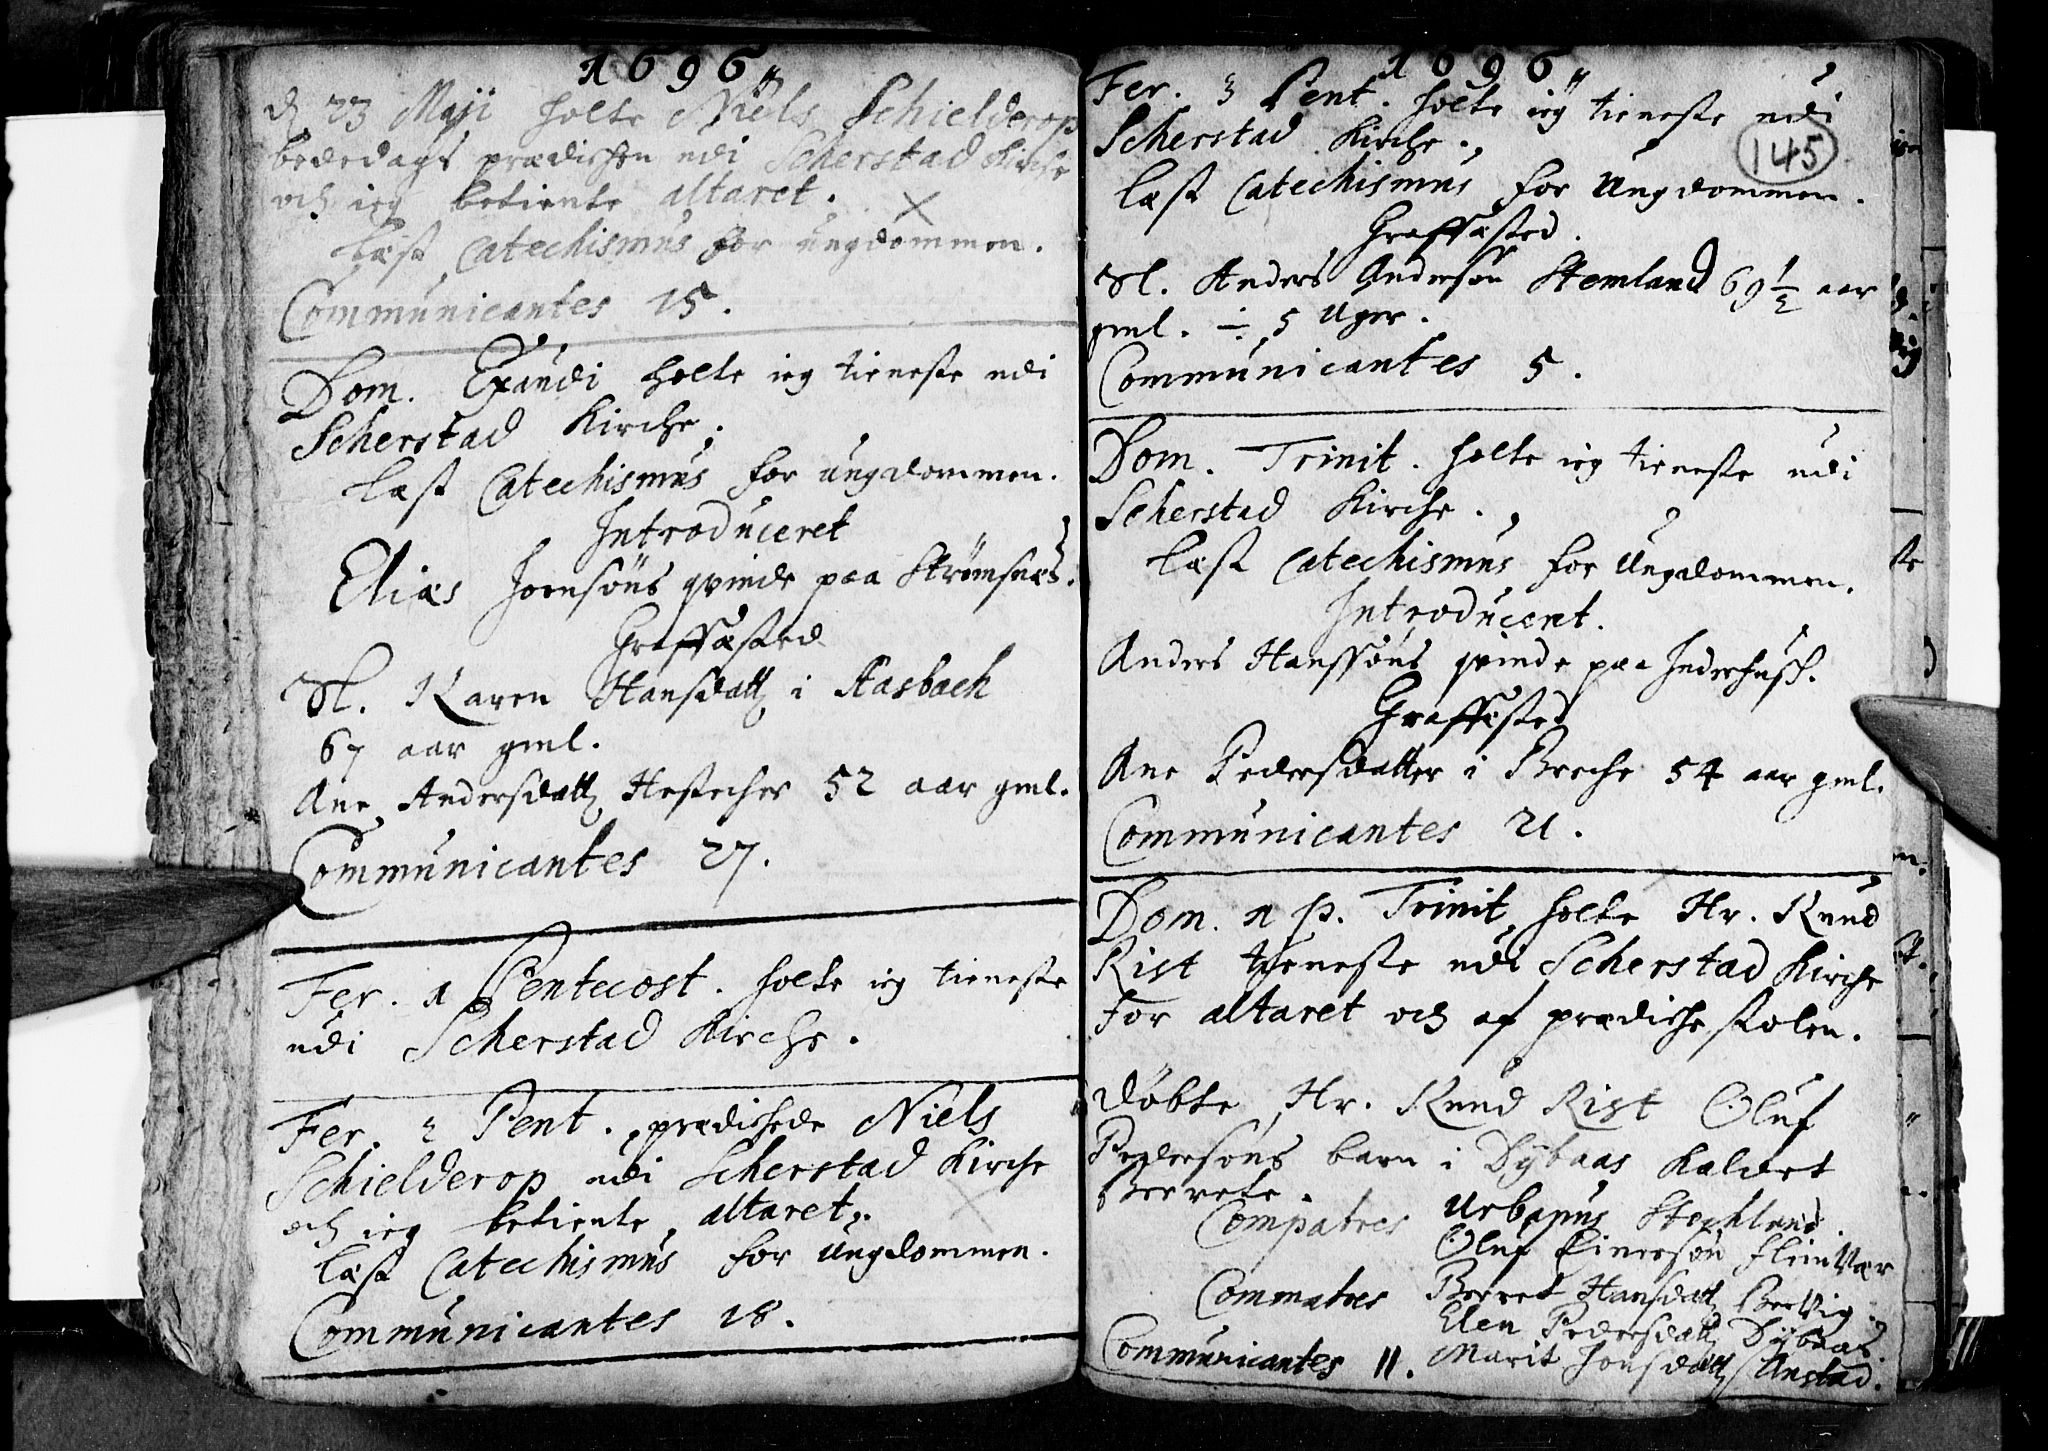 1696
d 23 Maji holte Niels Schielderop
bededags prædichen udi Scherstad Kirche
och ieg betiente altaret.
Læst Catechismus for ungdommen.
Communicantes 15.
Dom. Exaudi holte ieg tieneste udi
Scherstad Kirche.
Læst Catechismus for ungdommen.
Introduceret
Elias Joensöns qvinde paa Strømsnæs.
Graffæsted
Sl. Karen Hansdatt i Aasbach
67 aar gml.
Ane Andersdatt 52 aar gml.
Communicantes 27.
Fer. 1 Pentecost. holte ieg tieneste
udi Scherstad Kirche.
Fer. 2 Pent. prædichede Niels
Schielderop udi Scherstad Kirche
och ieg betiente altaret.
Læst Catechismus for ungdommen.
Communicantes 18.
1696
Fer. 3 Pent. holte ieg tieneste udi
Scherstad Kirche.
145
Læst Catechismus for Ungdommen.
Graffæsted.
Sl. Anders Andersön Stemland 69 1/2 aar
gml. ÷ 5 Uger.
Communicantes 5.
Dom. Trinit. holte ieg tieneste udi
Scherstad Kirche.
Læst Catechismus for Ungdommen.
Introducerit.
Anders Hanssöns qvinde paa
Graffæsted
Ane Pedersdatter i Breche 54 aar gml.
Communicantes 21.
Dom. 1 p. Trinit holte Hr. Knud
Rist tieneste udi Scherstad Kirche
for altaret och af prædiche stolen.
Döbte Hr. Knud Rist Oluf
Pedersöns barn i Dybaas kaldet
Berrete.
Compatres Urbanus
Oluf Einersön
Commatres Berret Hansdatt
Elen Pedersdatt Dybaas.
Communicantes 11. Marit Jonsdatt